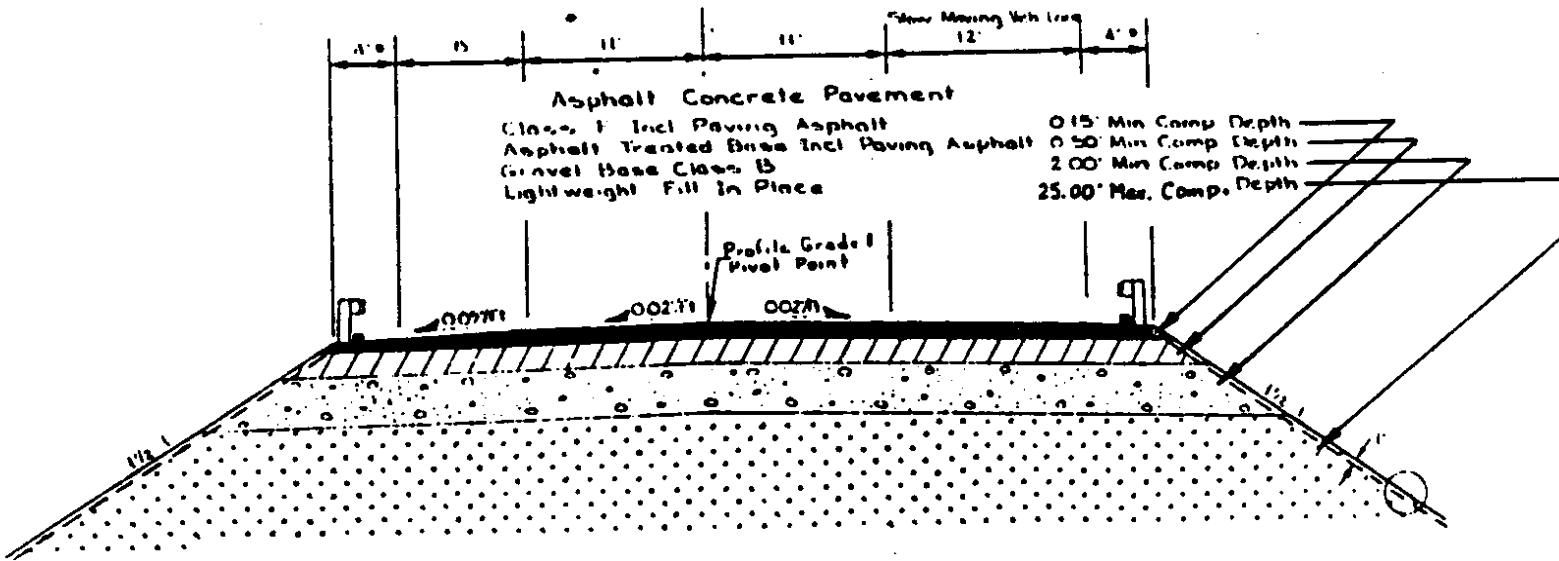 Slow Moving Veh Lane
4'
11'
11'
12'
4'
Asphalt Concrete Pavement
Class F Incl Paving Asphalt 0.15' Min Comp Depth
Asphalt Treated Base Incl Paving Asphalt 0.50' Min Comp Depth
Gravel Base Class B 2.00' Min Comp Depth
Lightweight Fill In Place 25.00' Max. Comp. Depth
Profile Grade &
Pivot Point
0.02'/Ft
0.02'/Ft
1 1/2 : 1
1 1/2 : 1
1'